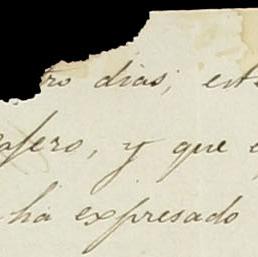 tro dias; est
asero, y que e
ha expresado